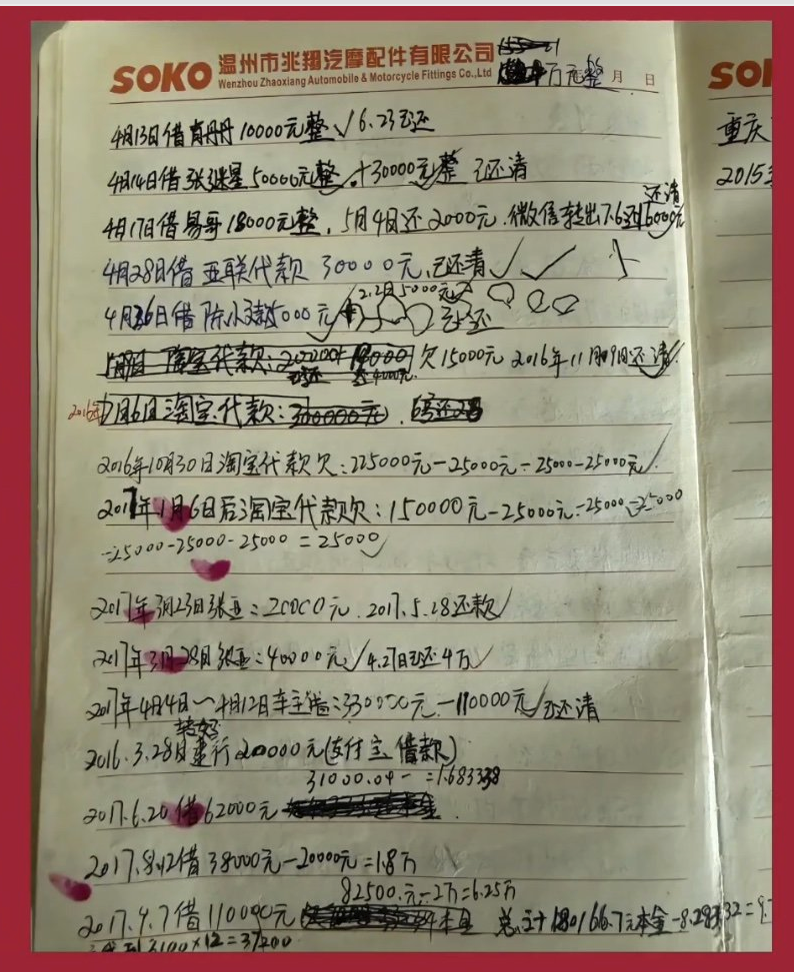 SOKO 温州市兆翔汽摩配件有限公司
Wenzhou Zhaoxiang Automobile & Motorcycle Fittings Co.,Ltd
万元整 月 日
SO
4月13日借肖丹丹10000元整√6.23已还
重庆
4月14日借张继星50000元整.+30000元整 已还清
2015
还清
4月17日借易哥18000元整,5月4日还2000元.微信转出7.6还16000元
4月28日借亚联代款30000元,已还清√√
2.2日5000元
借陈小 5000元 已还
淘宝代款: 欠15000元 2016年11月09日还清
2016年7月6日淘宝代款:300000元.
2016年10月30日淘宝代款欠:225000元-25000元-25000-25000元√
2017年1月6日后淘宝代款欠:150000元-25000元-25000-25000
-25000-25000-25000=25000√
2017年3月23日张亚:20000元.2017.5.28还款√
2017年3月28日张亚:40000元√4.27日已还4万√
2017年4月4日~4月12日车主 :330000元-110000元√已还清
2016.3.28日建行200000元(支付宝借款)
31000.04- =1.683338
2017.6.20借62000元
2017.8.12借38000元-20000元=1.8万
82500.元-2万=6.25万
2017.9.7借110000元 本金 总计180166.7元本金-8.28 32=9.
3100×12=37200